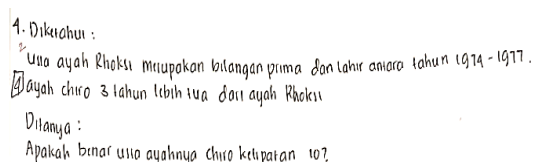 4. Diketahui :
2
Usia ayah Rhoksi merupakan bilangan prima dan lahir antara tahun 1974 - 1977.
4 ayah chiro 3 tahun lebih tua dari ayah Rhoksi
Ditanya :
Apakah benar usia ayahnya chiro kelipatan 10?